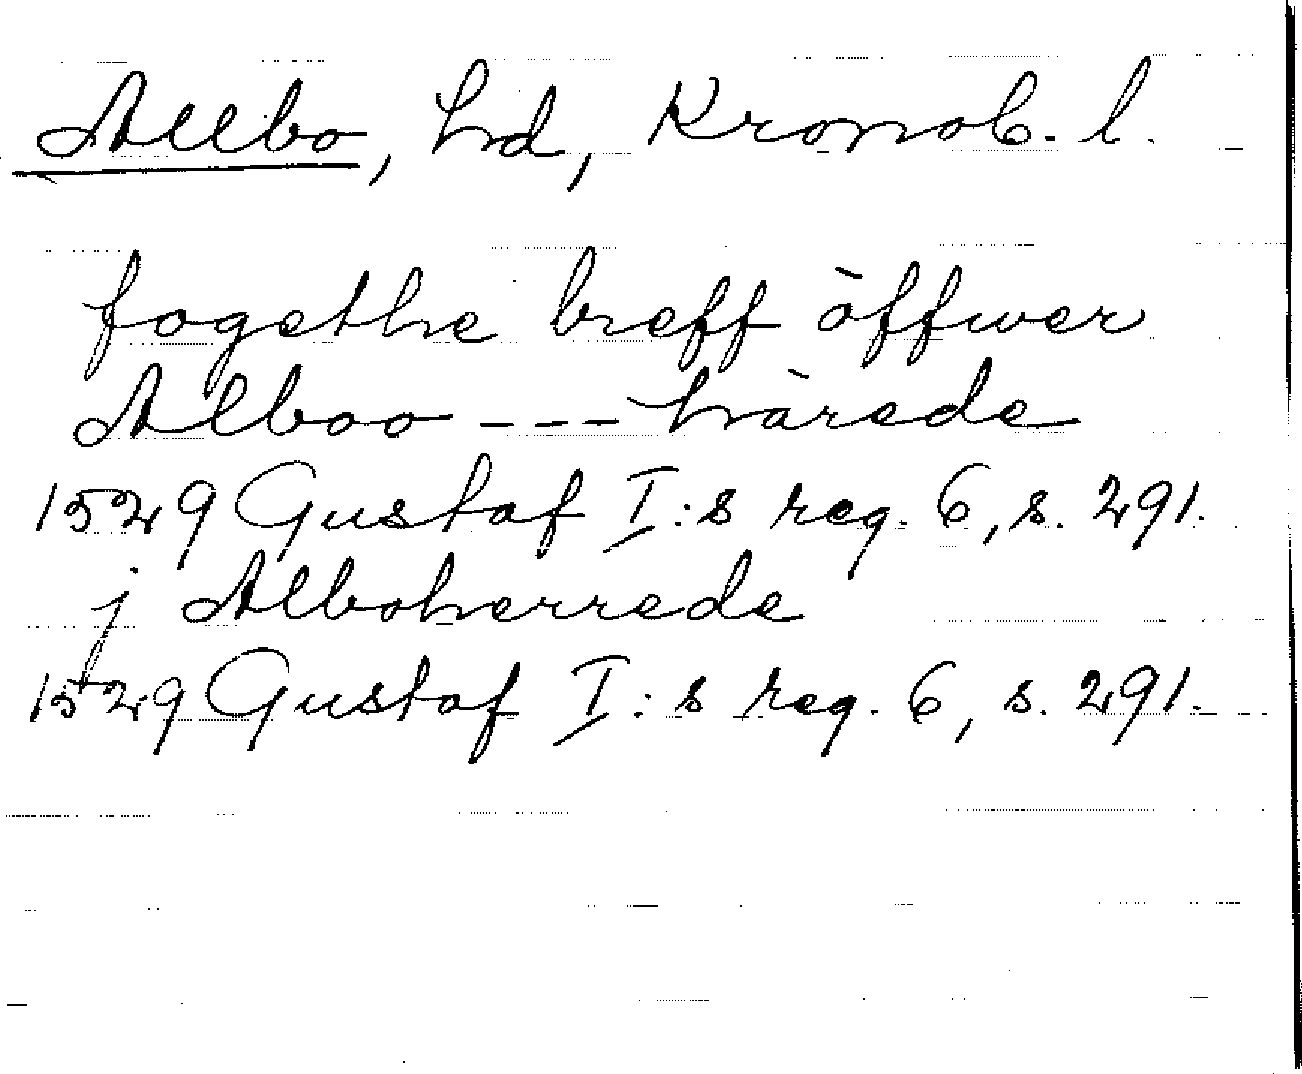 Allbo, hd, Kronob. l.
fogethe breff öffwer
Alboo --- härede
1529 Gustaf I:s reg. 6, s. 291.
j Alboherrede
1529 Gustaf I:s reg. 6, s. 291.